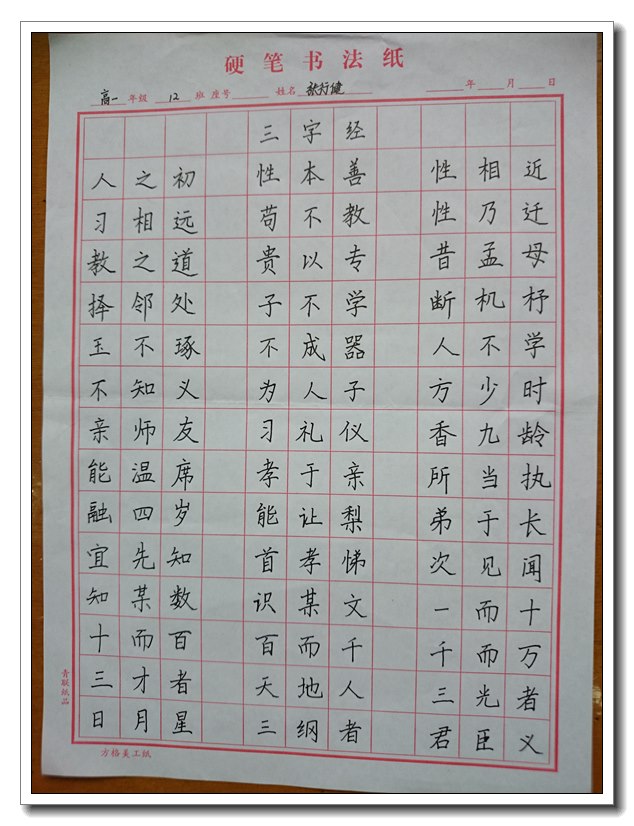 硬笔书法纸
高一 年级 12 班 座号 姓名 张行健 年 月 日
三字经
人之初 性本善 性相近
习相远 苟不教 性乃迁
教之道 贵以专 昔孟母
择邻处 子不学 断机杼
玉不琢 不成器 人不学
不知义 为人子 方少时
亲师友 习礼仪 香九龄
能温席 孝于亲 所当执
融四岁 能让梨 弟于长
宜先知 首孝悌 次见闻
知某数 识某文 一而十
十而百 百而千 千而万
三才者 天地人 三光者
日月星 三纲者 君臣义
青联纸品
方格美工纸